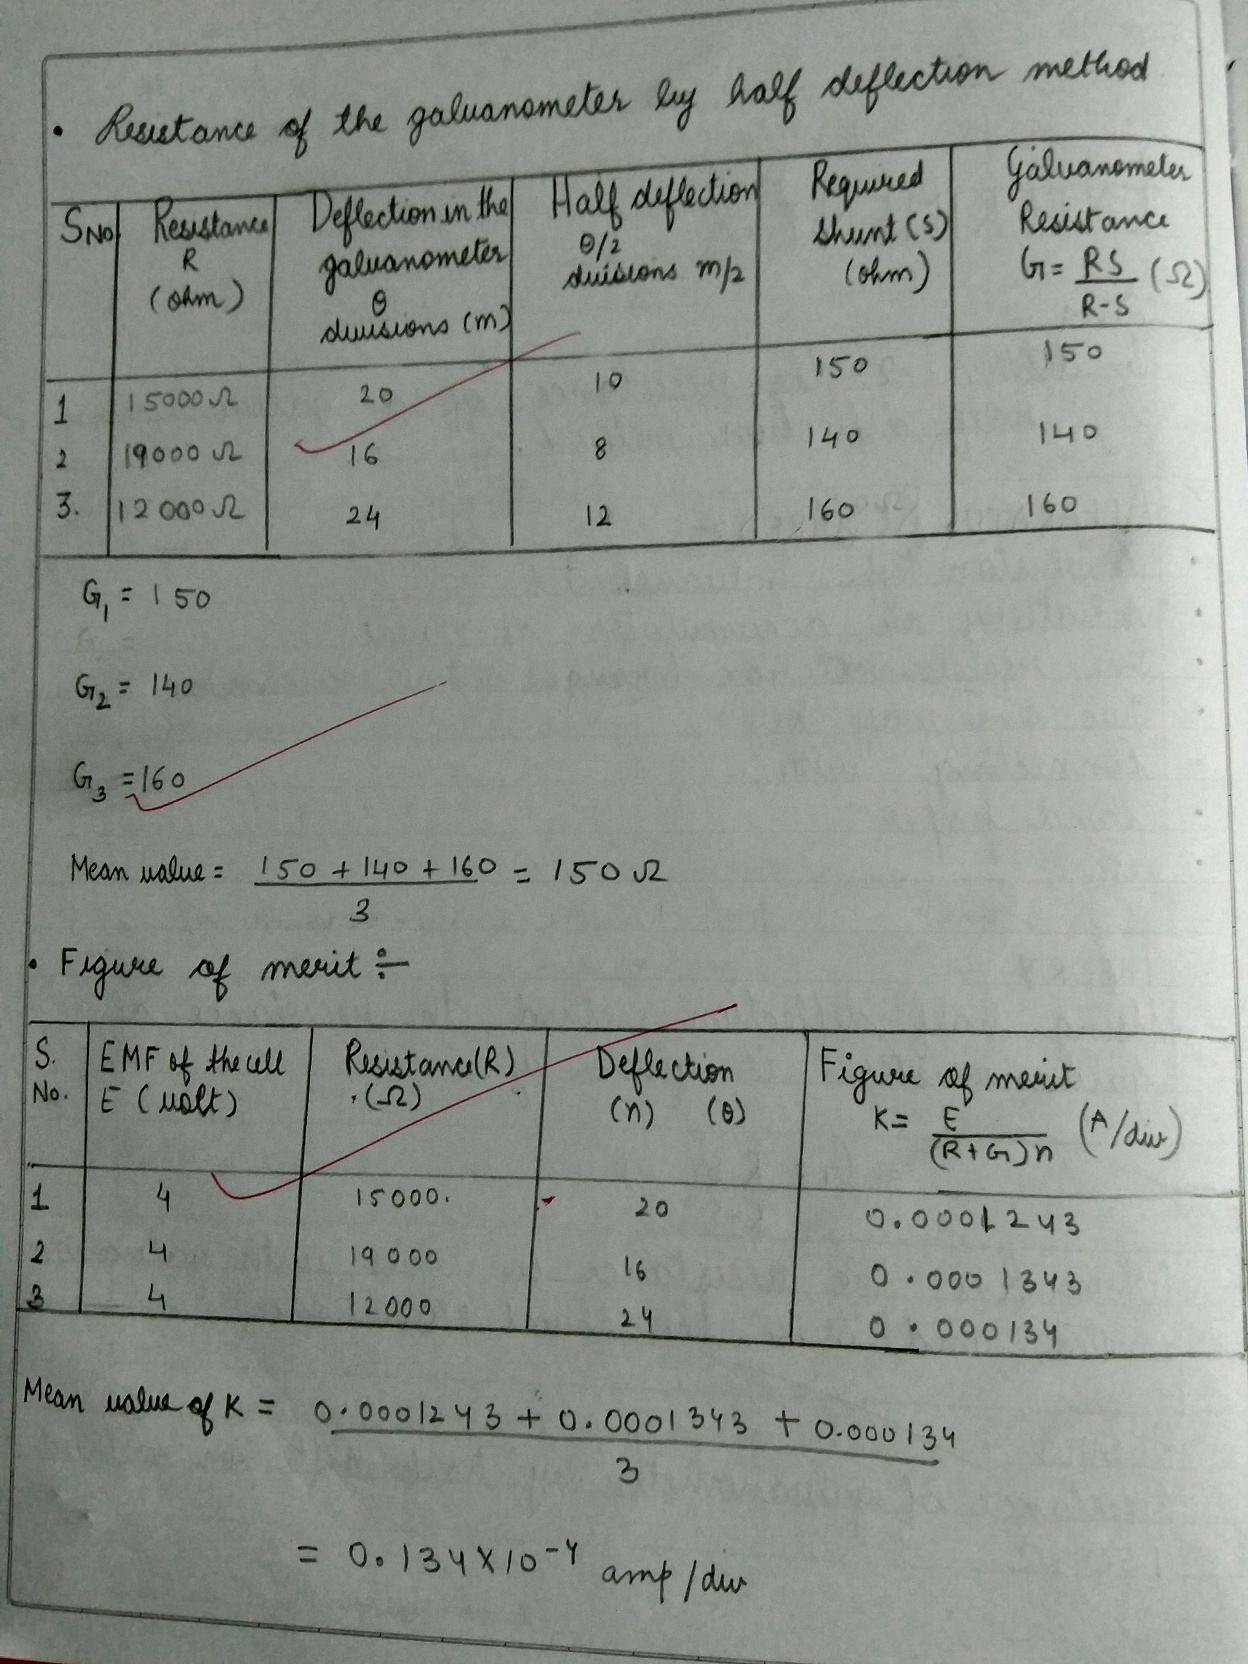 • Resistance of the galvanometer by half deflection method
S No | Resistance R (ohm) | Deflection in the galvanometer θ divisions (m) | Half deflection θ/2 divisions m/2 | Required shunt (S) (ohm) | Galvanometer Resistance G = RS/R-S (Ω)
1 | 15000Ω | 20 | 10 | 150 | 150
2 | 19000 Ω | 16 | 8 | 140 | 140
3. | 12000Ω | 24 | 12 | 160 | 160
G₁ = 150
G₂ = 140
G₃ = 160
Mean value = 150 + 140 + 160 = 150 Ω
3
• Figure of merit ÷
S. No. | EMF of the cell E (volt) | Resistance(R) (Ω) | Deflection (n) (θ) | Figure of merit K = E/(R+G)n (A/div)
1 | 4 | 15000. | 20 | 0.0001243
2 | 4 | 19000 | 16 | 0.0001343
3 | 4 | 12000 | 24 | 0.000134
Mean value of K = 0.0001243 + 0.0001343 + 0.000134
3
= 0.134×10⁻⁴ amp/div